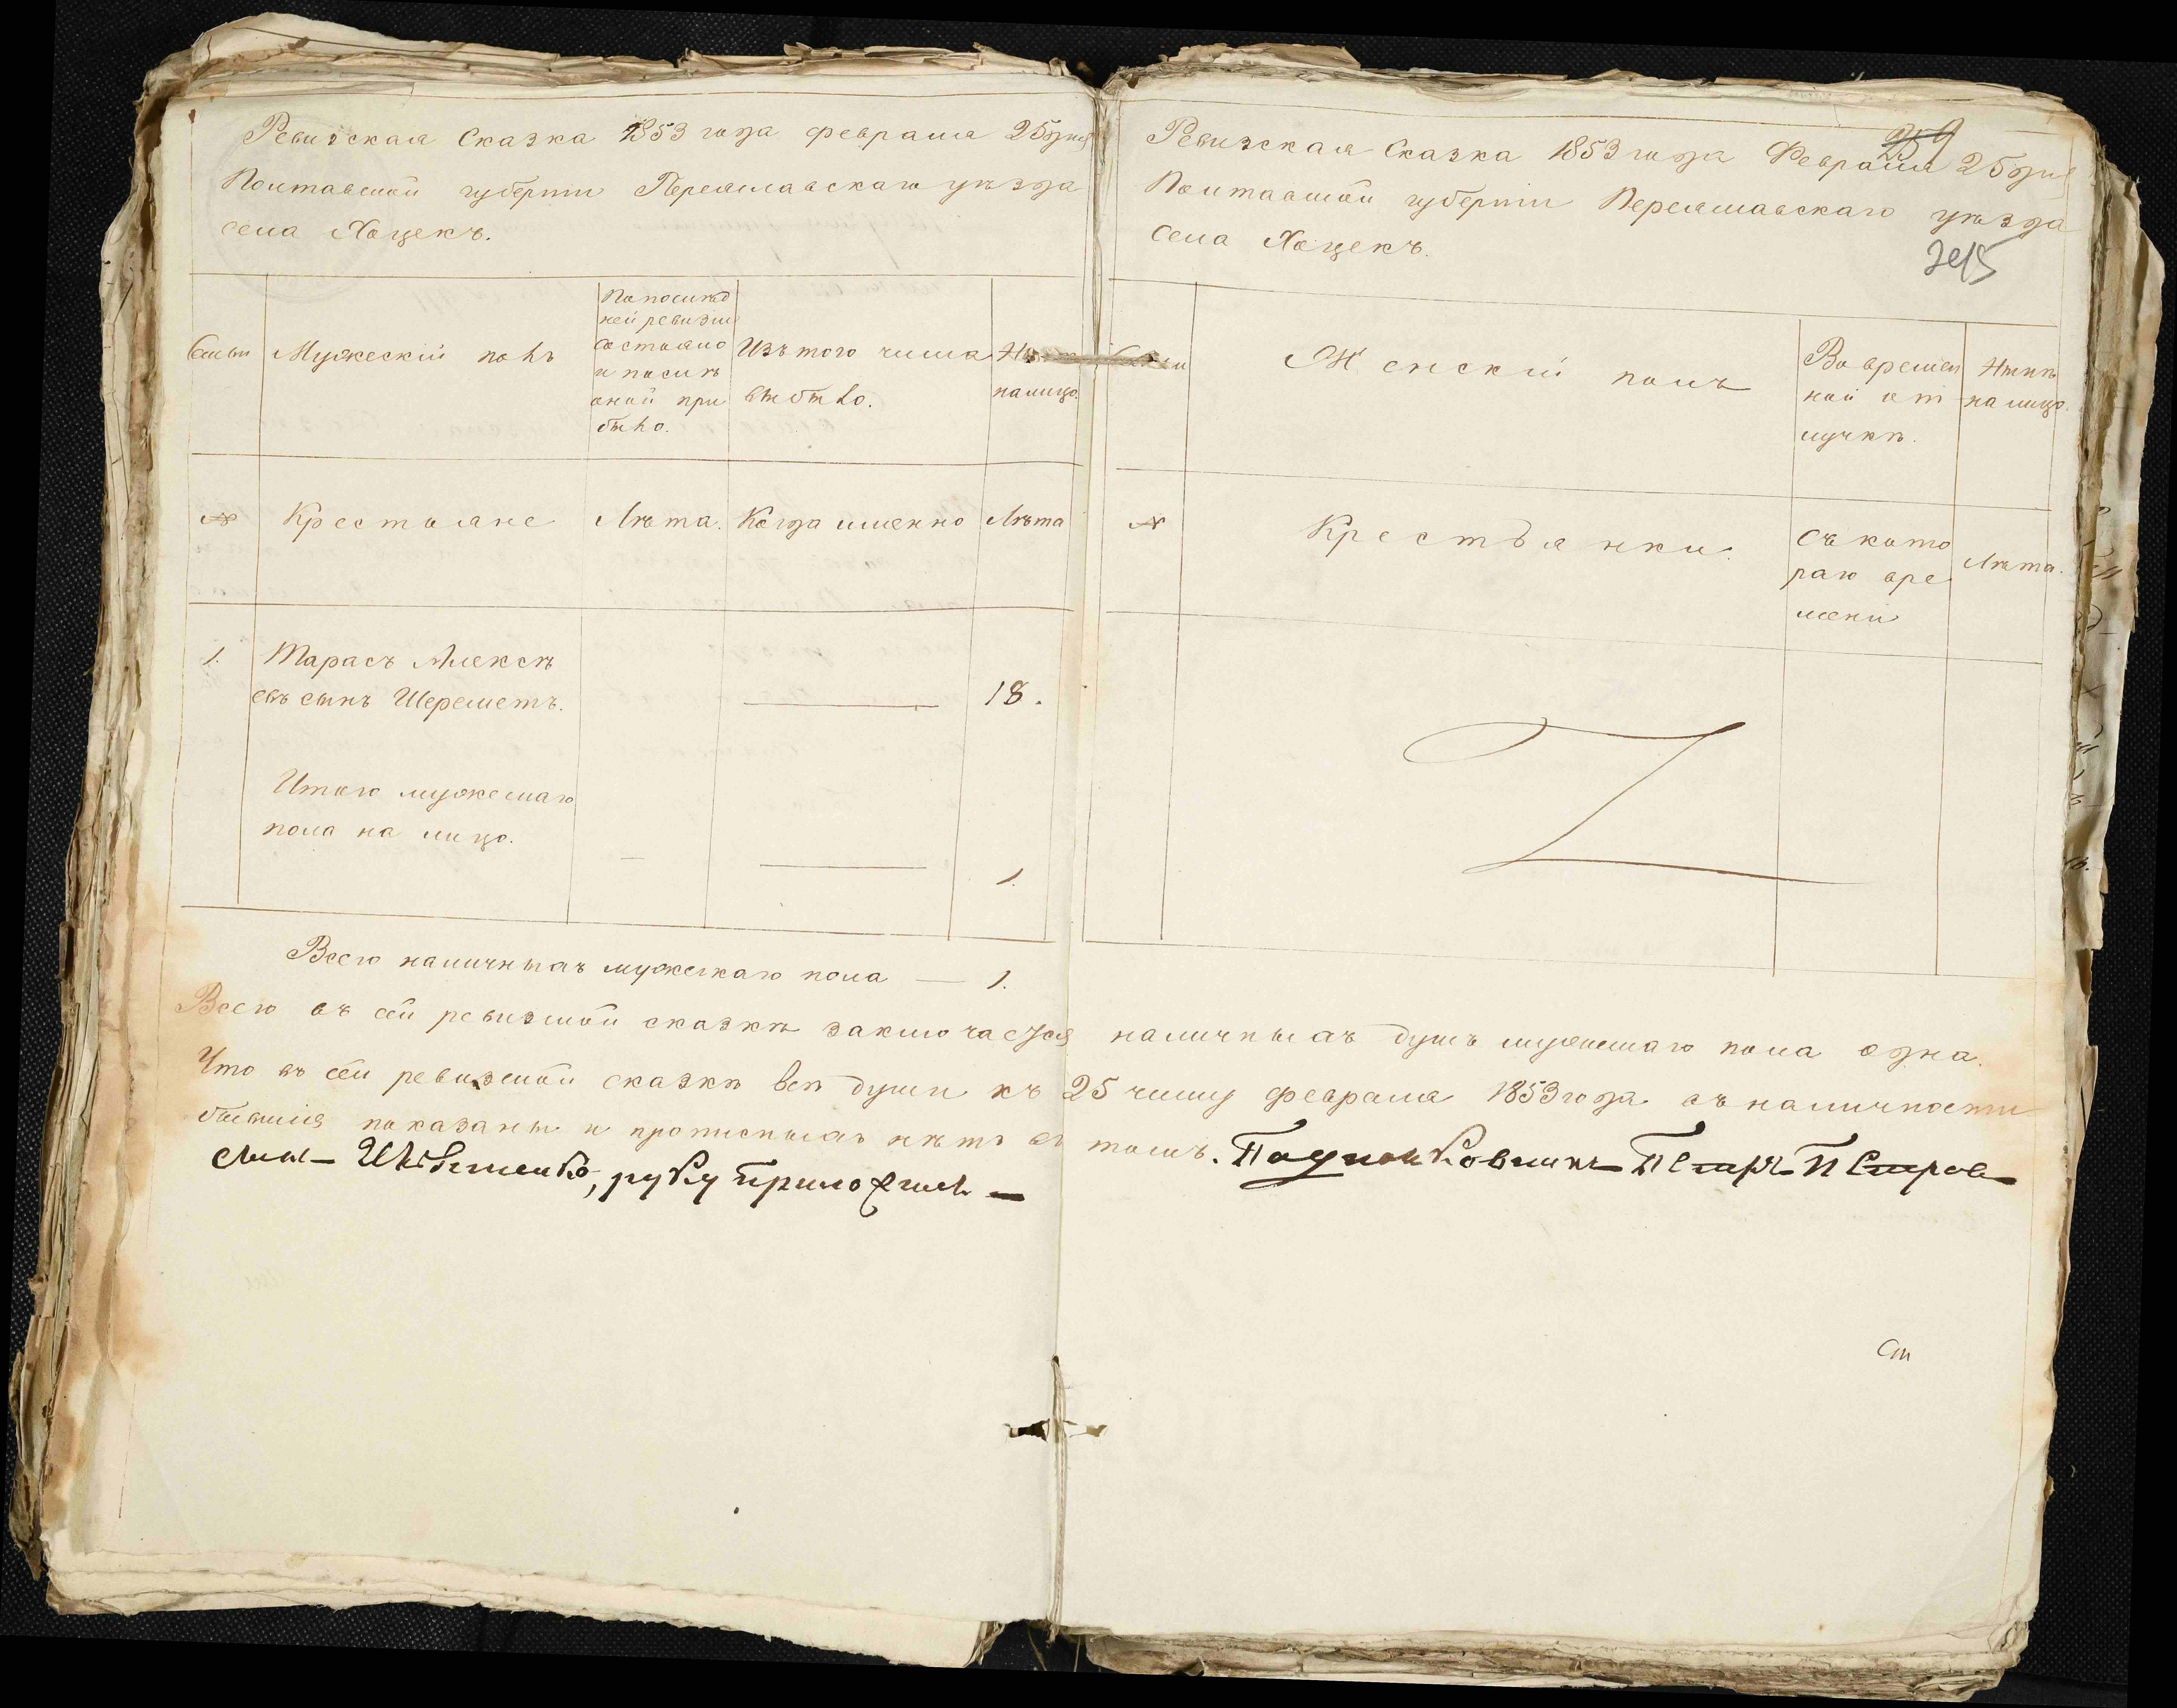 Ревизская Сказка 1853 года февраля 25 дня
Полтавской губернии Переяславскаго уѣзда
села Хоцекъ.
Семьи
Мужескій полъ
По послѣд
ней ревизіи
состояло
и послѣ
оной при
было.
Изъ того числа
выбыло.
на лицо.
№
Крестьяне
Лѣта.
Когда именно
Лѣта
1.
Тарасъ Алексѣ
евъ сынъ Шереметъ.
18.
Итого мужескаго
пола на лицо.
1.
Всего наличныхъ мужескаго пола — 1.
Ревизская Сказка 1853 года Февраля 25 дня
Полтавской губерніи Переяславскаго уѣзда
Села Хоцекъ.
345
Женскій полъ
Во времен
ной от
лучкѣ.
Нынѣ
на лицо.
№
Крестьянки.
Съ кото
раго вре
мени
Лѣта.
Всего въ сей ревизской сказкѣ заключается наличныхъ душъ мужескаго пола одна.
Что въ сей ревизской сказкѣ всѣ души къ 25 числу февраля 1853 года въ наличности
бывшія показаны и прописныхъ нѣтъ въ томъ. Подполковникъ Петръ Петровъ
сынъ руку приложилъ —
Ст